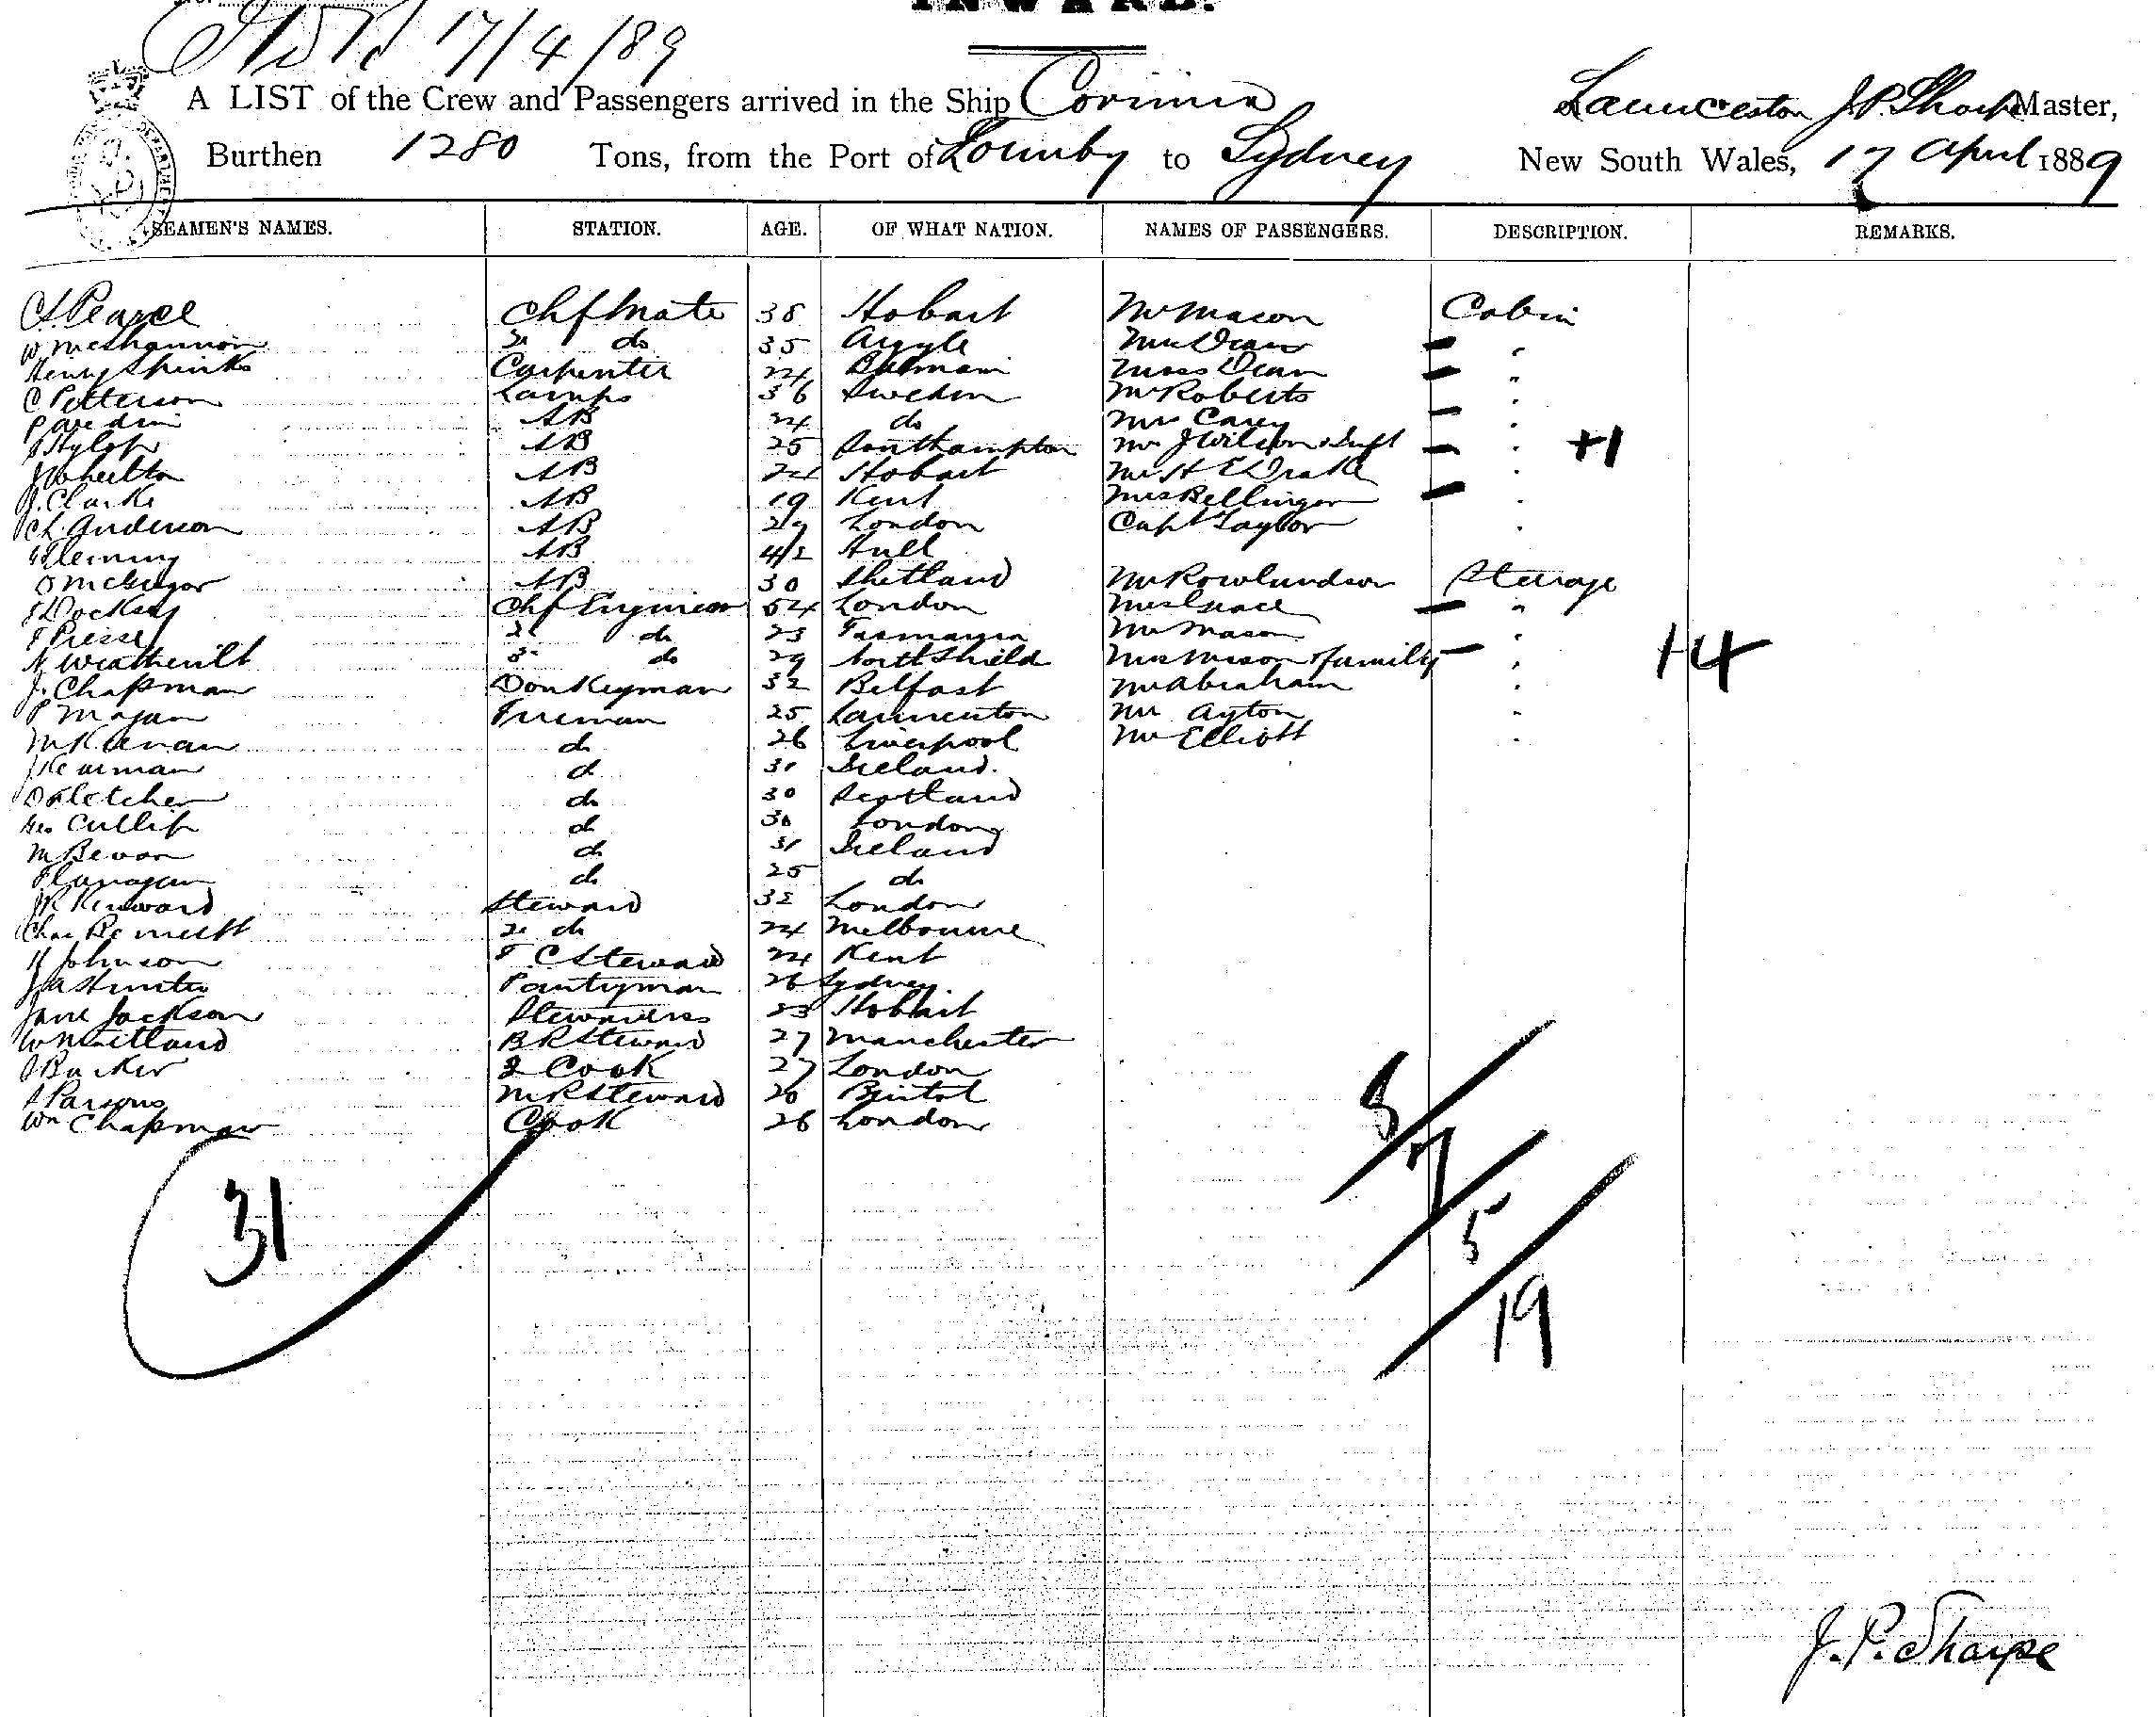 INWARD.
17/4/89
A LIST of the Crew and Passengers arrived in the Ship Corinna Launceston J.P. Sharpe Master,
Burthen 1280 Tons, from the Port of to Sydney New South Wales, 17 April 1889
SEAMEN'S NAMES. STATION. AGE. OF WHAT NATION. NAMES OF PASSENGERS. DESCRIPTION. REMARKS.
Pearce Chf Mate 38 Hobart Mr Macon Cabin
W McShannon 2 do 35 Argyle Mrs Dean "
Henry Spinks Carpenter 24 Balmain Miss Dean "
C Petterson Lamps 36 Sweden Mr Roberts "
AB 24 do Mrs Carey "
J Hyslop AB 25 Southampton Mr J Wilson & Inft " +1
J Wheilton AB 24 Hobart Mr H E Drake "
J. Clarke AB 19 Kent Mrs Bellinger "
Ch. Anderson AB 29 London Capt Taylor "
Fleming AB 42 Hull
D McGregor AB 30 Shetland Mr Rowlandson Steerage
J Dockery Chf Engineer 54 London Mrs Grace "
T Presse 2 do 23 Tasmania Mr Mason "
N Weatherilt 3 do 29 North Shield Mrs Mason & family " +4
J. Chapman Donkeyman 32 Belfast Mr Abraham "
P Magan Fireman 25 Mr Ayton "
M Keenan do 26 Liverpool Mr Elliott "
J Kearman do 31 Ireland.
D Fletcher do 30 Scotland
Geo Cullip do 30 London
M Bevan do 31 Ireland
Flanagan do 25 do
J R Kenward Steward 32 London
Chas Bennett 2 do 24 Melbourne
H Johnson F C Steward 24 Kent
J A Hunter Pantryman 26 Sydney
Jane Jackson Stewardess 23 Hobart
W Maitland B R Steward 27 Manchester
J Barker 2 Cook 27 London
S Parsons M R Steward 20 Bristol
Wm Chapman Cook 26 London
8/
7/
31
5/
19
J. P. Sharpe